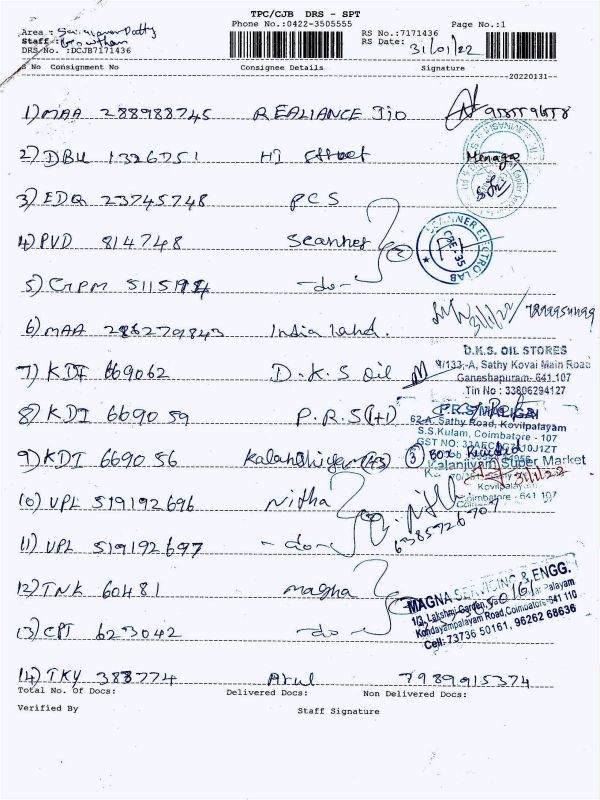 TPC/CJB DRS - SPT
Phone No.:0422-3505555 Page No.:1
Area : Saravanampatty RS No.:7171436
Staff : Gowtham RS Date: 31/01/22
DRS No. :DCJB7171436
S No Consignment No Consignee Details Signature
20220131--
1) MAA 288988745 REALIANCE Jio
2) DBU 1326751 HI Street Menaga
3) EDQ 23745748 PCS
4) PVD 814748 Scanner 2
SCANNER ELECTRO LAB
CBE-35
5) CPM -do-
6) MAA 2862779843 India land. 31/1/22
D.K.S. OIL STORES
7) KDI 669062 D.K.S oil 9/133,-A, Sathy Kovai Main Road
Ganeshapuram- 641 107
Tin No : 33806294127
8) KDI 669059 P.R.S (1+1) P.R.S MALIGAI
62-A, Sathy Road, Kovilpalayam
S.S.Kulam, Coimbatore - 107
9) KDI 669056 3 Box
Kalanjiyam Super Market
31/1/22
Kovilpalayam
Coimbatore - 641 107
10) VPL 519192696 Nitha
6385726707
11) VPL 519192697 -do-
12) TNK 60481 magna MAGNA & ENGG.
1/3, Lakshmi Garden, Palayam
Kondayampalayam Road, Coimbatore-641 110
13) CPT 6273042 -do- Cell: 73736 50161, 96262 68636
14) TKY 383774 Arul 7989915374
Total No. Of Docs: Delivered Docs: Non Delivered Docs:
Verified By Staff Signature